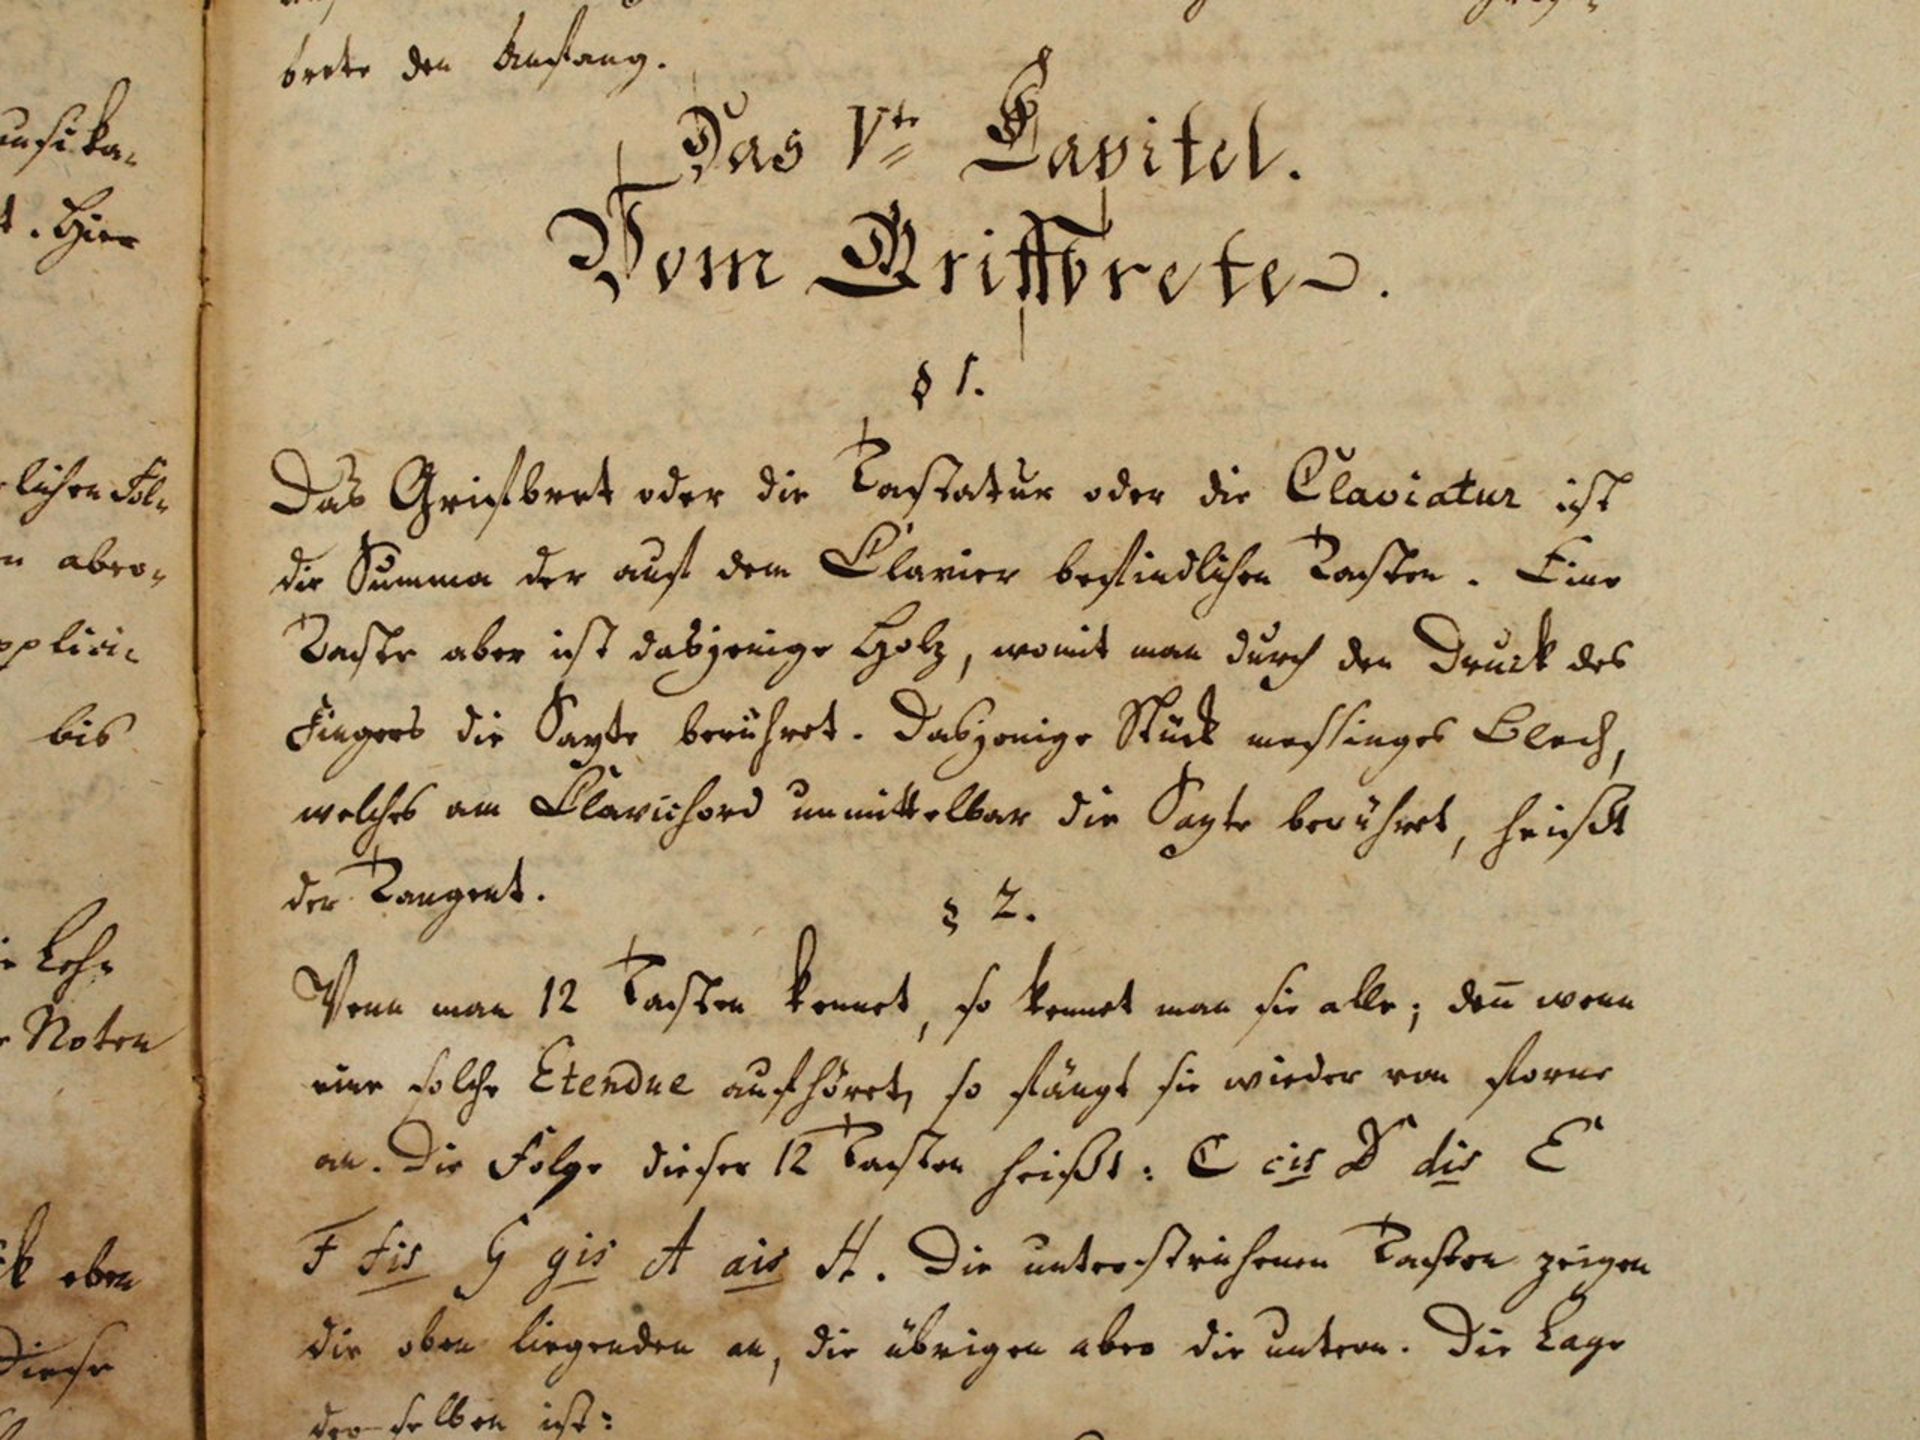 brete den Anfang.
Das Vte Capitel.
Vom Griffbrete.
§ 1.
Das Griffbret oder die Tastatur oder die Claviatur ist
die Summa der auf dem Clavier befindlichen Tasten. Eine
Taste aber ist dasjenige Holz, womit man durch den Druck des
Fingers die Sayte berühret. Dasjenige Stück messinges Blech,
welches am Clavichord unmittelbar die Sayte berühret, heißt
der Tangent.
§ 2.
Wenn man 12 Tasten kennet, so kennet man sie alle; den̄ wenn
eine solche Etendue aufhöret, so fängt sie wieder von forne
an. Die Folge dieser 12 Tasten heißt: C cis D dis E
F fis G gis A ais H. Die unterstrichenen Tasten zeigen
die oben liegenden an, die übrigen aber die untern. Die Lage
derselben ist:
musika-
t. Hier
lichen Fol-
n abro-
pplici-
bis
Leh-
Noten
k eben
Diese